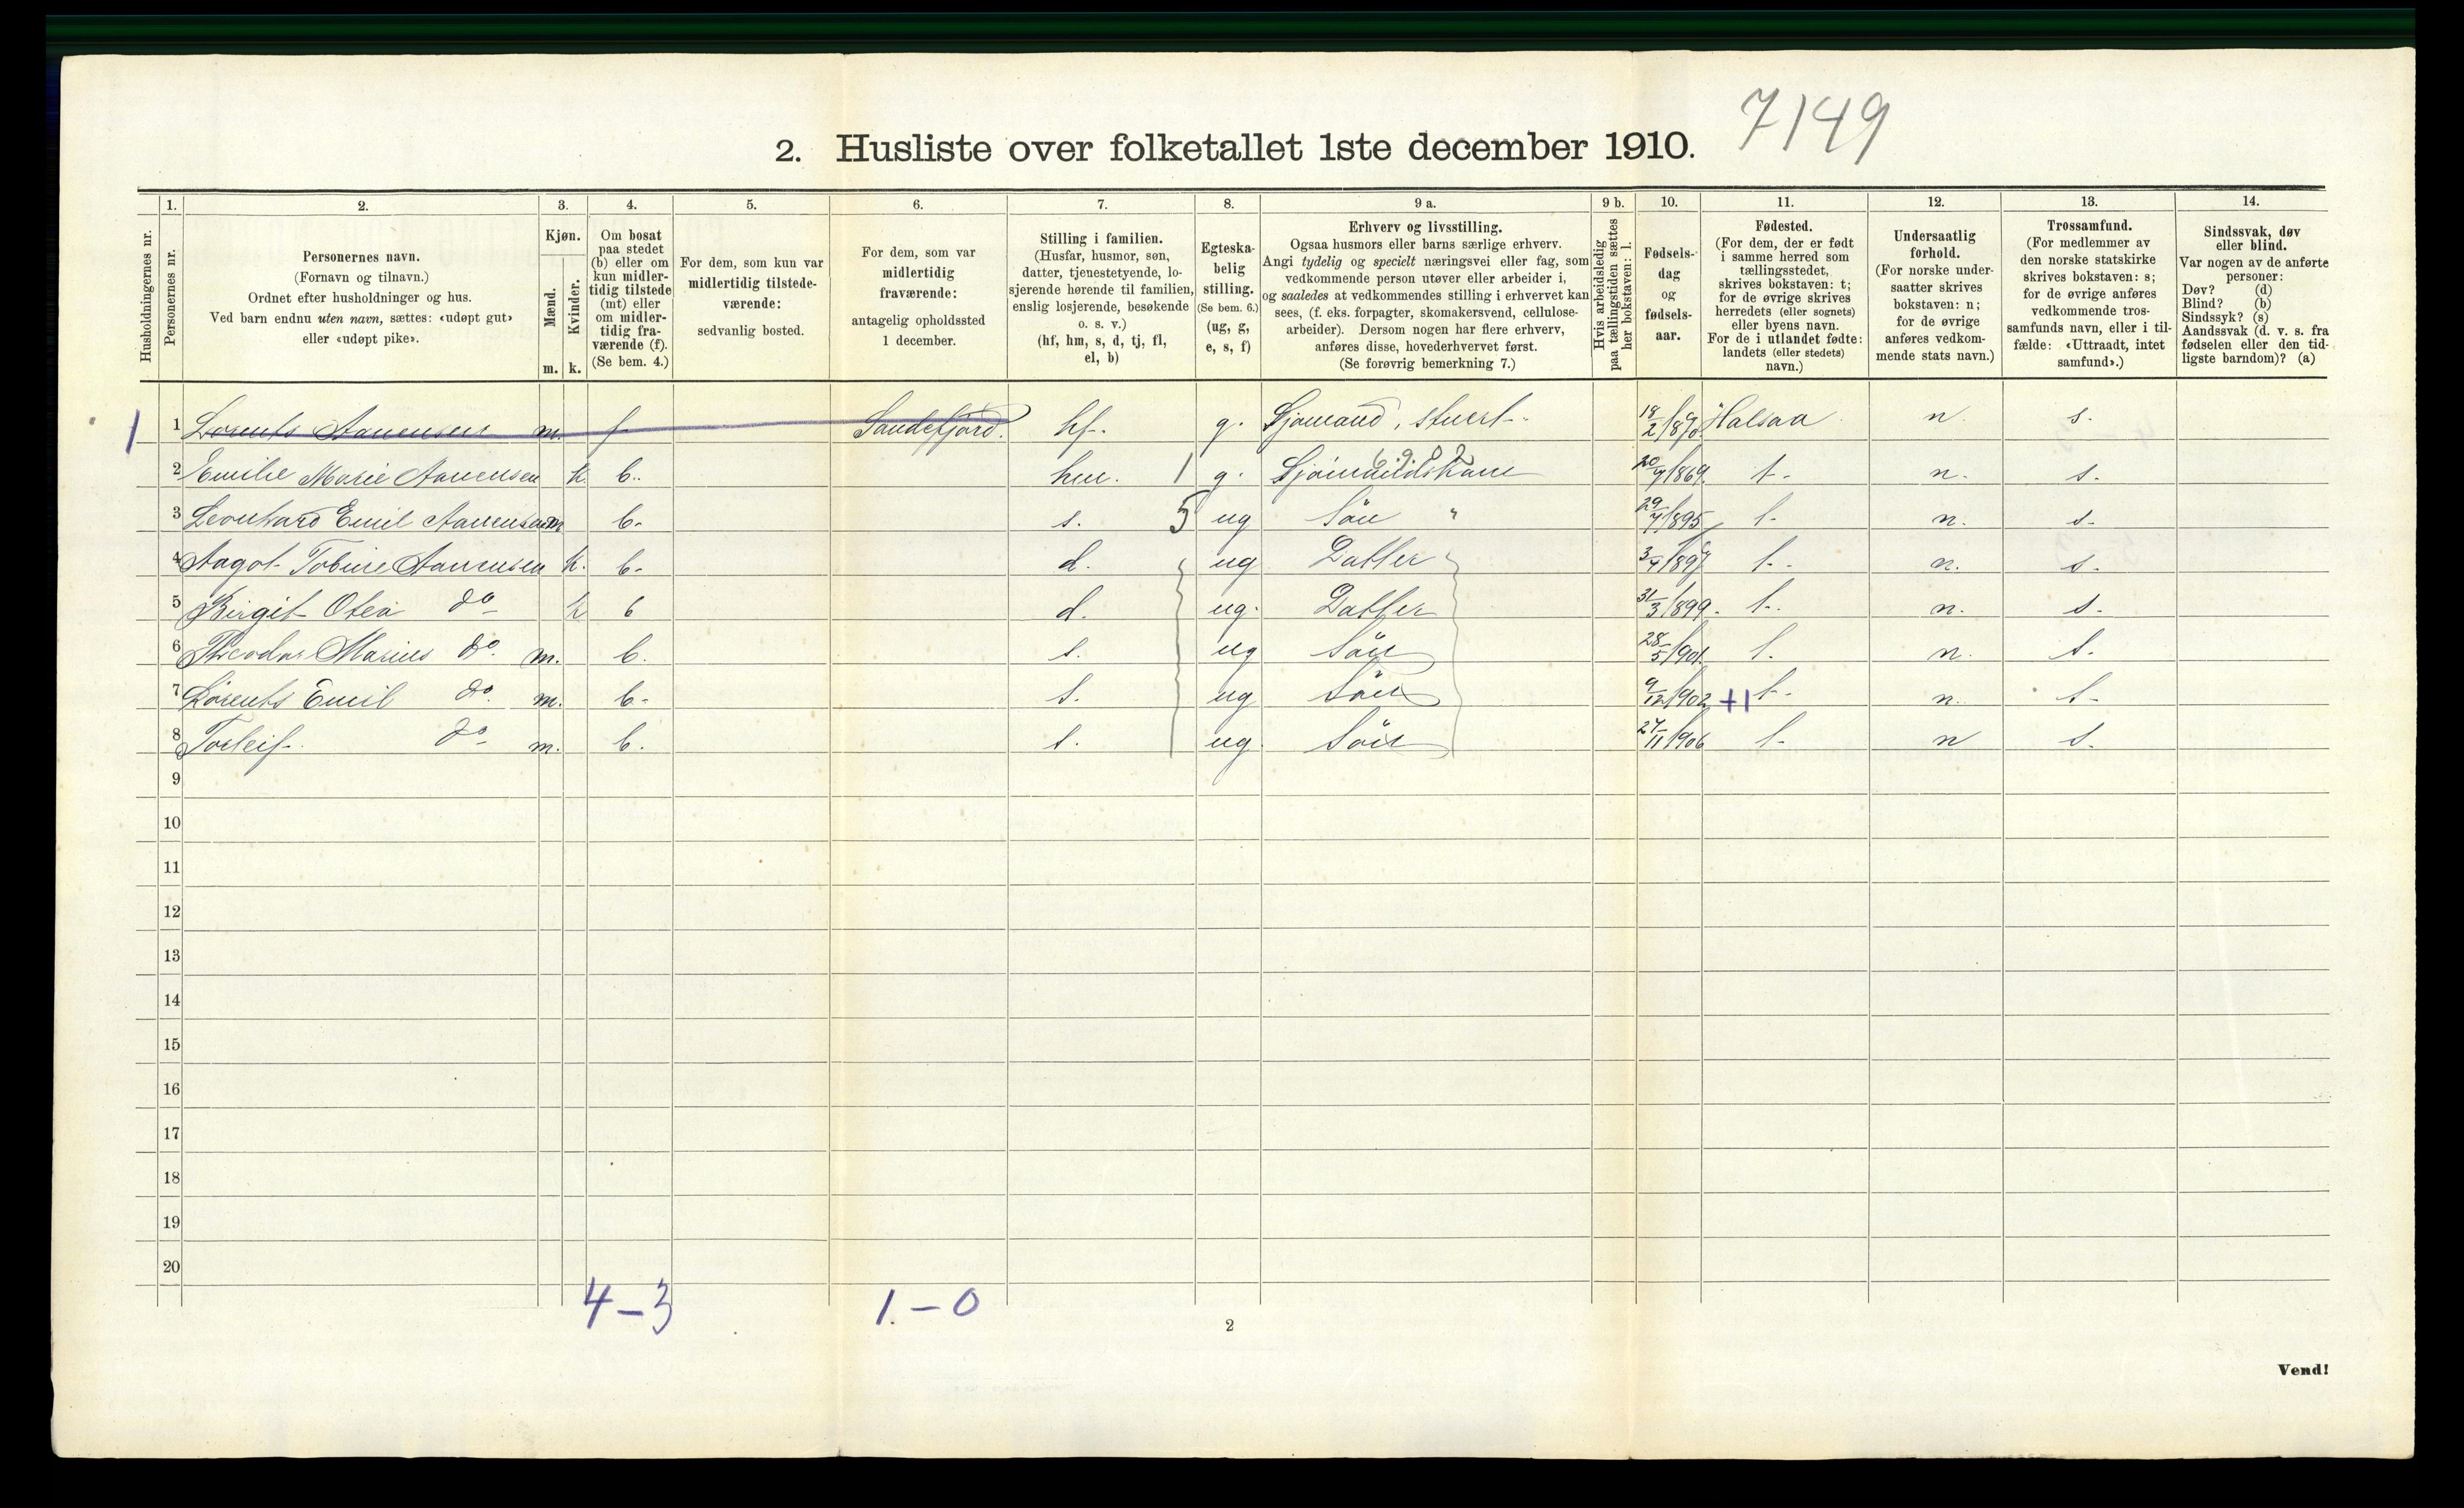 7149
2. Husliste over folketallet 1ste december 1910.
Husholdningernes nr.
1.
Personernes nr.
2.
Personernes navn.
(Fornavn og tilnavn.)
Ordnet efter husholdninger og hus.
Ved barn endnu uten navn, sættes: «udøpt gut»
eller «udøpt pike».
3.
Kjøn.
Mænd.
Kvinder.
m. k.
4.
Om bosat
paa stedet
(b) eller om
kun midler-
tidig tilstede
(mt) eller
om midler-
tidig fra-
værende (f).
(Se bem. 4.)
5.
For dem, som kun var
midlertidig tilstede-
værende:
sedvanlig bosted.
6.
For dem, som var
midlertidig
fraværende:
antagelig opholdssted
1 december.
7.
Stilling i familien.
(Husfar, husmor, søn,
datter, tjenestetyende, lo-
sjerende hørende til familien,
enslig losjerende, besøkende
o. s. v.)
(hf, hm, s, d, tj, fl,
el, b)
8.
Egteska-
belig
stilling.
(Se bem. 6.)
(ug, g,
e, s, f)
9 a.
Erhverv og livsstilling.
Ogsaa husmors eller barns særlige erhverv.
Angi tydelig og specielt næringsvei eller fag, som
vedkommende person utøver eller arbeider i,
og saaledes at vedkommendes stilling i erhvervet kan
sees, (f. eks. forpagter, skomakersvend, cellulose-
arbeider). Dersom nogen har flere erhverv,
anføres disse, hovederhvervet først.
(Se forøvrig bemerkning 7.)
9 b.
Hvis arbeidsledig
paa tællingstiden sættes
her bokstaven: l.
10.
Fødsels-
dag
og
fødsels-
aar.
11.
Fødested.
(For dem, der er født
i samme herred som
tællingsstedet,
skrives bokstaven: t;
for de øvrige skrives
herredets (eller sognets)
eller byens navn.
For de i utlandet fødte:
landets (eller stedets)
navn.)
12.
Undersaatlig
forhold.
(For norske under-
saatter skrives
bokstaven: n;
for de øvrige
anføres vedkom-
mende stats navn.)
13.
Trossamfund.
(For medlemmer av
den norske statskirke
skrives bokstaven: s;
for de øvrige anføres
vedkommende tros-
samfunds navn, eller i til-
fælde: «Uttraadt, intet
samfund».)
14.
Sindssvak, døv
eller blind.
Var nogen av de anførte
personer:
Døv? (d)
Blind? (b)
Sindssyk? (s)
Aandssvak (d. v. s. fra
fødselen eller den tid-
ligste barndom)? (a)
1 1 Lorents Aanensen m. f Sandefjord. hf. g. Sjømand, stuert 18/2 1870 Halsaa n s.
2 Emilie Marie Aanensen k. b. hm. 1 g. Sjømandskone 1869. t. n. s.
3 Leonhard Emil Aanensen m b. s. 5 ug Sön " 1895 t. n. s.
4 Aagot Tobine Aanensen k. b. d. ug Datter 3/4 1897 t. n. s.
5 Birgit Otea do k b d. ug. Datter 31/3 1899. t. n. s.
6 Theodor Marius do. m. b. s. ug Sön 28/5 1901. t. n. s.
7 Lorents Emil do. m. b. s. ug Sön 9/12 1902 +1 t. n. s.
8 Torleif do m. b. s. ug. Sön 27/11 1906 t. n s.
9
10
11
12
13
14
15
16
17
18
19
20
4 – 3 1. – 0
2
Vend!